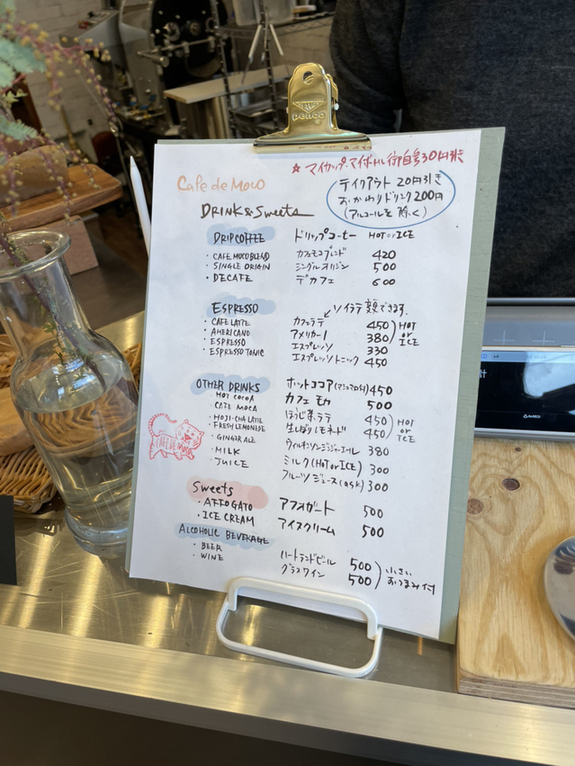 PENCO
☆ マイカップ・マイボトル御自身30円引き
Cafe de Moco
テイクアウト 20円引き
おかわりドリンク 200円
(アルコールを除く)
DRINK & Sweets
DRIP COFFEE ドリップコーヒー HOT or ICE
・CAFE MOCO BLEND カフェモコブレンド 420
・SINGLE ORIGIN シングルオリジン 500
・DECAFE デカフェ 600
ESPRESSO ソイラテ 変更できます。
・CAFE LATTE カフェラテ 450 HOT or ICE
・AMERICANO アメリカーノ 380
・ESPRESSO エスプレッソ 330
・ESPRESSO TONIC エスプレッソトニック 450
OTHER DRINKS
・HOT COCOA ホットココア(マシュマロ付) 450
・CAFE MOCA カフェ モカ 500
・HOJI-CHA LATTE ほうじ茶ラテ 450 HOT or ICE
・FRESH LEMONEDE 生しぼりレモネード 450
・GINGER ALE ウィルキンソンジンジャーエール 380
・MILK ミルク (HOT or ICE) 300
・JUICE フルーツジュース 300
CAFE DE MOCO
Sweets
・AFFOGATO アフォガート 500
・ICE CREAM アイスクリーム 500
ALCOHOLIC BEVERAGE
・BEER ハートランドビール 500 小さいおつまみ付
・WINE グラスワイン 500